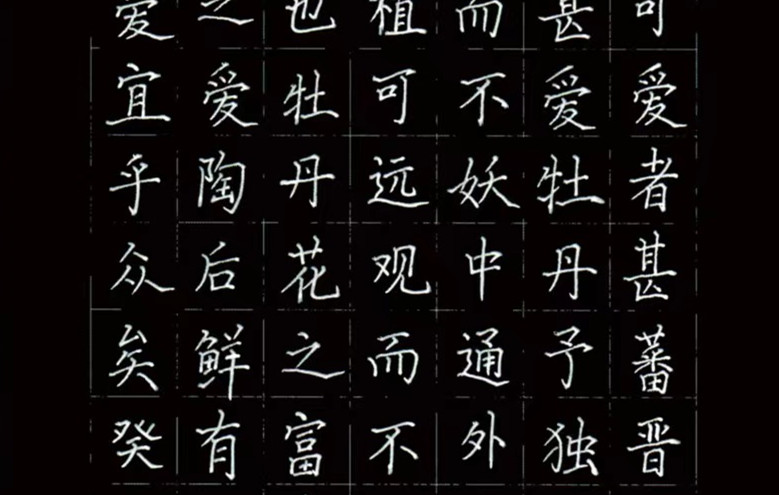 可爱者甚蕃晋
甚爱牡丹予独
而不妖中通外
植可远观而不
也牡丹花之富
之爱陶后鲜有
爱宜乎众矣癸